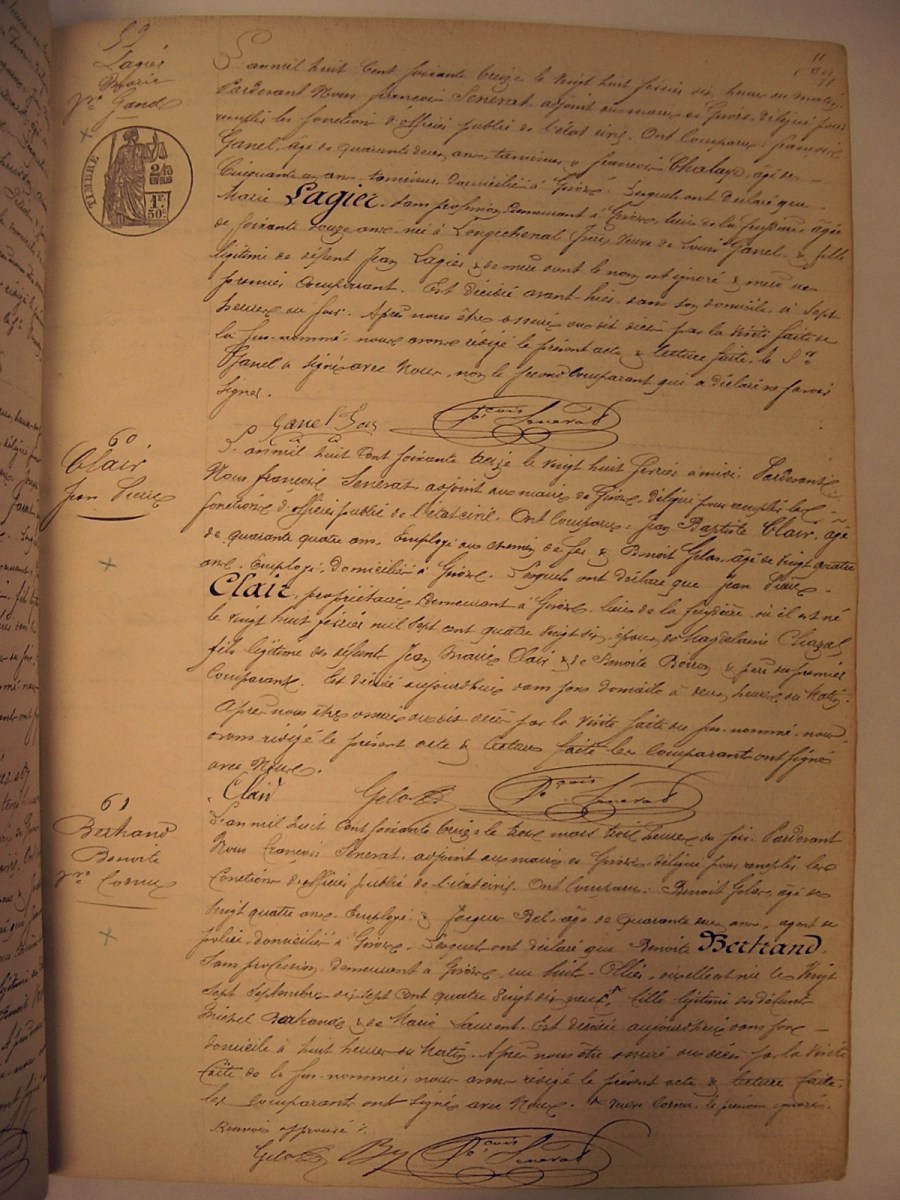 59
Lagier
Marie
Vve Ganel
TIMBRE
L'an mil huit cent soixante treize le vingt huit février dix heures du matin
Pardevant Nous françois Senerat adjoint au maire de Givors délégué pour
remplir les fonctions d'officier public de l'état civil. Ont comparu: françois
Ganel, âgé de quarante deux ans, & françois Chalaye, âgé de
Cinquante ans, domiciliés à Givors. Lesquels ont déclaré que
Marie Lagier, sans profession, demeurant à Givors, âgée
de soixante douze ans, née à Longechenal (Isère) veuve de Louis Ganel, & fille
légitime de défunt Jean Lagier & de mère dont le nom est ignoré & mère du
premier Comparant. Est décédé avant hier, dans son domicile, à sept
heures du soir. Après nous être assuré du dit décès par la visite faite de
la sus-nommé, nous avons rédigé le présent acte & lecture faite, le Sr
Ganel a signé avec Nous, non le second comparant qui a déclaré ne savoir
signer.
Ganel
fçois Senerat
60
Clair
Jean Pierre
L'an mil huit cent soixante treize le vingt huit février à midi. Pardevant
Nous françois Senerat adjoint au maire de Givors, délégué pour remplir les
fonctions d'officier public de l'état civil. Ont comparu: Jean Baptiste Clair, âgé
de quarante quatre ans, Employé aux chemin de fer & Benoit Gelas, âgé de vingt quatre
ans, Employé, domiciliés à Givors. Lesquels ont déclaré que Jean Pierre
Clair, propriétaire demeurant à Givors, où il est né
le vingt huit février mil sept cent quatre vingt dix, époux de Magdelaine Chazal
fils légitime des défunts Jean Marie Clair & de Benoite Boiron & père du premier
Comparant. Est décédé aujourd'hui dans son domicile à deux heures du Matin.
Après nous être assuré du dit décès par la visite faite du sus-nommé nous
avons rédigé le présent acte & lecture faite les comparant ont signé
avec Nous.
Clair Gelas fçois Senerat
61
Bertrand
Benoite
Vve Cornu
L'an mil huit cent soixante treize le trois mars trois heures du soir. Pardevant
Nous françois Senerat, adjoint au maire de Givors, délégué pour remplir les
fonctions d'officier public de l'état civil. Ont comparu: Benoit Gelas, âgé de
vingt quatre ans, Employé, & Jacques Bel, âgé de quarante ans, agent de
police, domiciliés à Givors. Lesquels ont déclaré que Benoite Bertrand
sans profession, demeurant à Givors, née le vingt
sept Septembre dix sept cent quatre vingt dix neuf, fille légitime des défunts
Michel Bertrand & de Marie Laurent. Est décédée aujourd'hui dans son
domicile à huit heures du Matin. Après nous être assuré du décès par la visite
faite de la sus-nommée, nous avons rédigé le présent acte & lecture faite,
les comparant ont signé avec Nous.
Renvoi approuvé
Gelas fçois Senerat